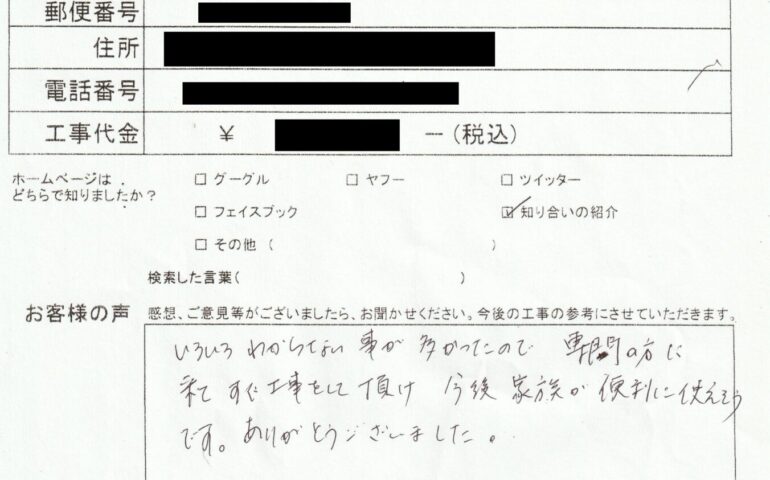 郵便番号
住所
電話番号
工事代金 ¥ ー(税込)
ホームページは
どちらで知りましたか?
□ グーグル □ ヤフー □ ツイッター
□ フェイスブック ☑ 知り合いの紹介
□ その他( )
検索した言葉( )
お客様の声 感想、ご意見等がございましたら、お聞かせください。今後の工事の参考にさせていただきます。
いろいろ わからない 事が 多かったので 専門の方に
来て すぐ工事をして頂け 今後 家族が 便利に使えそう
です。ありがとうございました。